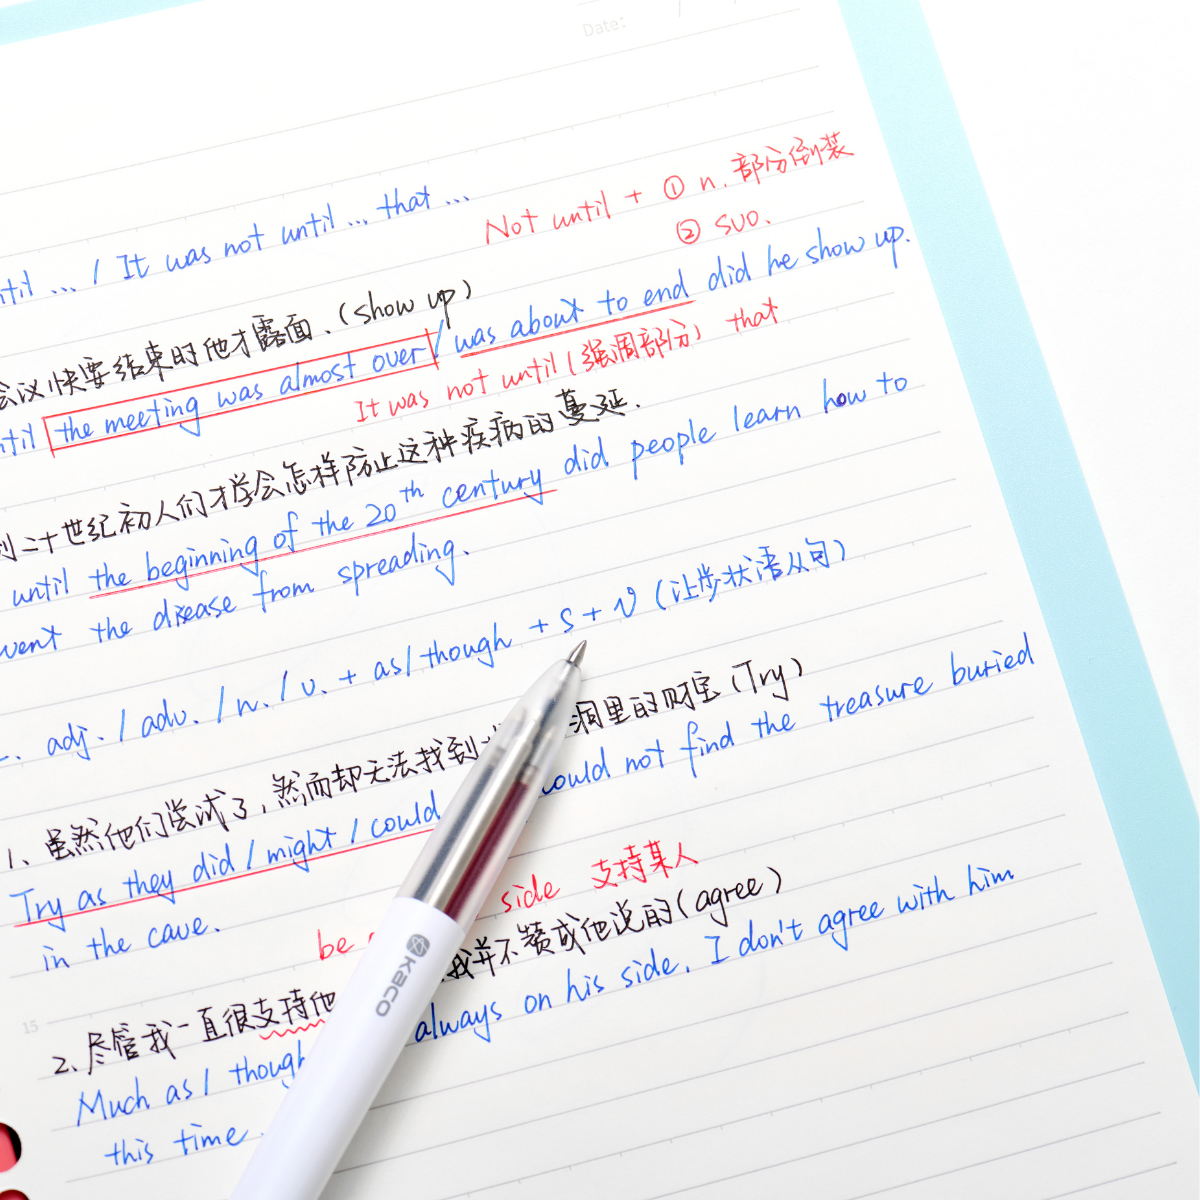 Date: / /
Not until + ① n. 部分倒装
② suo.
... / It was not until ... that ...
会议快要结束时他才露面.(show up)
the meeting was almost over / was about to end did he show up.
It was not until (强调部分) that
到二十世纪初人们才学会怎样防止这种疾病的蔓延.
until the beginning of the 20th century did people learn how to
the disease from spreading.
adj. / adv. / n. / v. + as / though + s + v (让步状语从句)
1、虽然他们尝试了,然而却无法找到 洞里的财宝 (Try)
Try as they did / might / could could not find the treasure buried
in the cave.
be side 支持某人
2、尽管我一直很支持他 我并不赞成他说的 (agree)
Much as / though always on his side, I don't agree with him
this time.
15
kaco